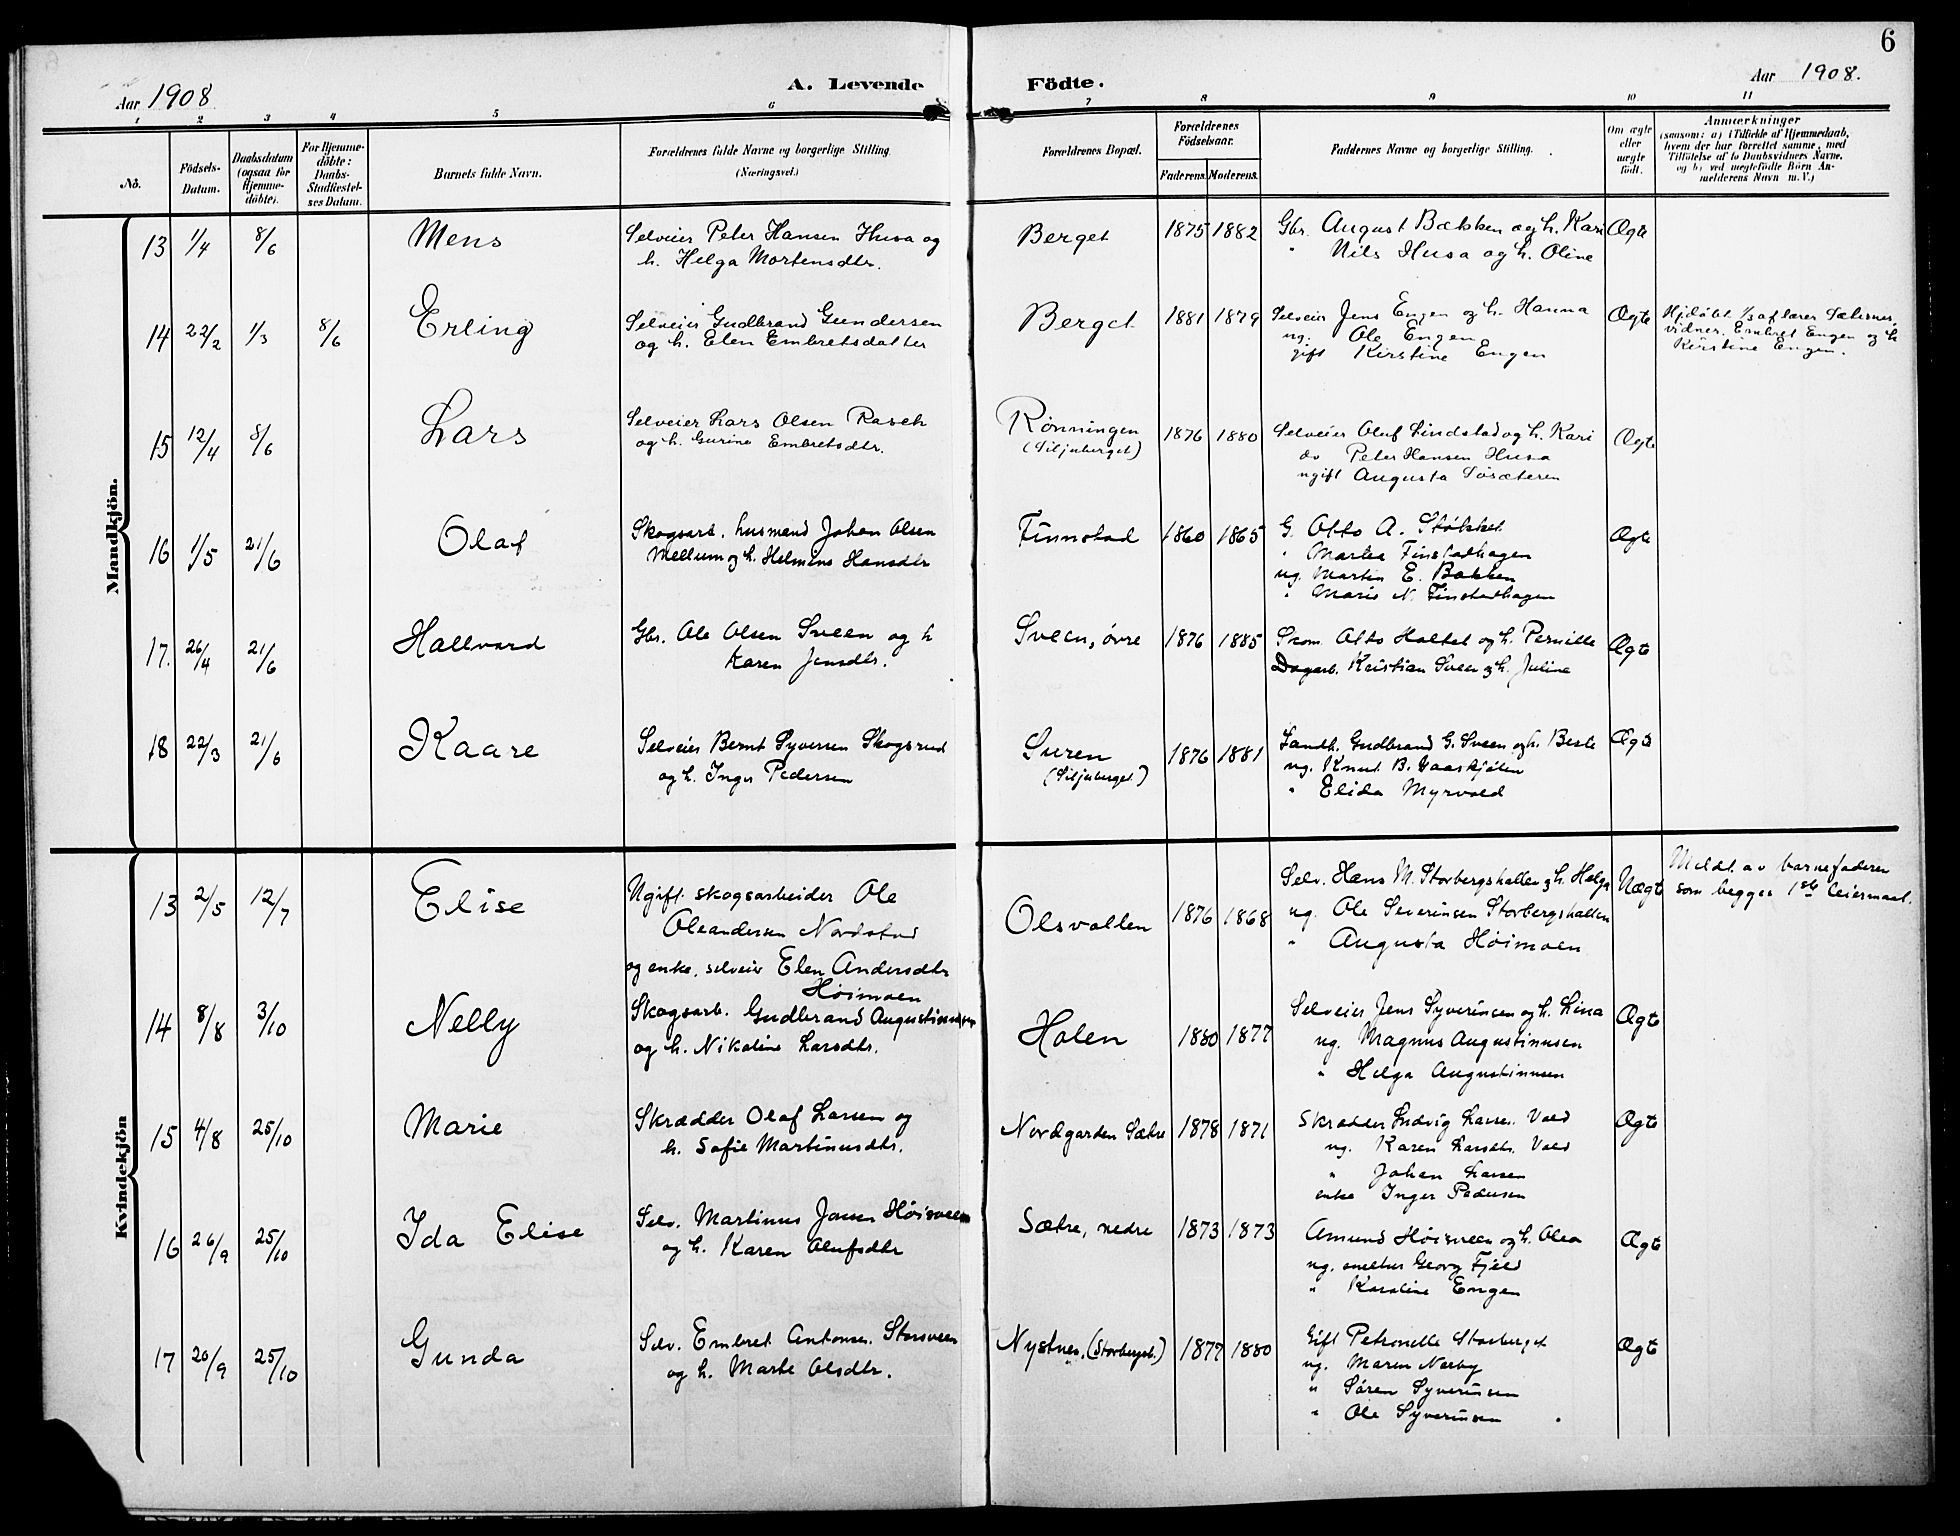 6
Aar 1908. A. Levende Födte. Aar 1908.
1 2 3 4 5 6 7 8 9 10 11
No. Födsels-Datum. Daabsdatum (ogsaa for Hjemme-döbte). For Hjemme-döbte: Daabs-Stadfæstel-ses Datum. Barnets fulde Navn. Forældrenes fulde Navne og borgerlige Stilling. (Næringsvei.) Forældrenes Bopæl. Forældrenes Födselsaar. Faderens. Moderens. Faddernes Navne og borgerlige Stilling. Om ægte eller uægte födt. Anmærkninger
(saasom: a) i Tilfælde af Hjemmedaab, hvem der har forrettet samme, med Tilföielse af to Daabsvidners Navne, og b) ved uægtefödte Börn An-melderens Navn m. V.)
Mandkjön.
13 1/4 8/6 Mens Selveier Peter Hansen Husa og Berget 1875 1882 Gbr. August Bækken og h. Kari Ægte
h. Helga Mortensdtr. " Nils Husa og h. Oline
14 22/2 1/3 8/6 Erling Selveier Gudbrand Gundersen Berget 1881 1879 Selveier Jens Engen og h. Hanna Ægte Hjdøbt 1/3 af lærer Sæternes,
og h. Elen Embretsdatter ug. Ole Engen vidner. Embret Engen og h
gift Kirstine Engen Kirstine Engen.
15 12/4 8/6 Lars Selveier Lars Olsen Rasch Rønningen 1876 1880 Selveier Oluf Lindstad og h. Kari Ægte
og h. Gurine Embretsdtr. (Siljuberget) do Peter Hansen Husa
ugift Augusta Søsæteren
16 1/5 21/6 Olaf Skogsarb. husmand Johan Olsen Finnstad 1860 1865 G. Otto A. Støkket Ægte
Mellum og h. Helmine Hansdtr " Martea Finstadhagen
ug. Martin E. Bakken
" Marie N. Finstadhagen
17. 26/4 21/6 Hallvard Gbr. Ole Olsen Sveen og h Sveen, øvre 1876 1885 Skom. Otto Holtet og h. Pernille Ægte
Karen Jensdtr. Dagarb. Kristian Sveen og h. Juline
18 22/3 21/6 Kaare Selveier Bernt Syversen Skogsrud Suren 1876 1881 Landh. Gudbrand G. Sveen og h. Beste Ægte
og h. Inger Pedersen (Siljuberget) ug. Knut B. Gaaskjølen
" Elida Myrvold
Kvindekjön
13 2/5 12/7 Elise Ugift skogsarbeider Ole Olsvollen 1876 1868 Selv. Hans M. Storbergshallen og h. Helga Uægte Meldt av barnefaderen
Oleandersen Nordstad ug. Ole Severinsen Storbergshallen som begges 1ste leiermaal.
og enke, selveier Elen Andersdtr " Augusta Høimoen
Høimoen
14 8/8 3/10 Nelly Skogsarb. Gudbrand Augustinussen Holen 1880 1877 Selveier Jens Syverinsen og h. Lina Ægte
og h. Nikoline Larsdtr. ug. Magnus Augustinusen
" Helga Augustinusen
15 4/8 25/10 Marie Skrædder Olaf Larsen og Nordgarden Sætre 1878 1871 Skrædder Ludvig Larsen Vold Ægte
h. Sofie Martinusdtr. ug. Karen Larsdtr. Vold
" Johan Larsen
enke Inger Pedersen
16 26/9 25/10 Ida Elise Selv. Martinus Jonsen Høisveen Sætre, nedre 1873 1873 Amund Høisveen og h. Olea Ægte
og h. Karen Olufsdtr ug. smelter Georg Fjeld
" Karoline Engen
17 20/9 25/10 Gunda Selv. Embret Antonsen Storsveen Nystuen. (Storberget.) 1877 1880 Gift Petronelle Storberget Ægte
og h. Marte Olsdtr. ug. Maren Nørby
" Søren Syverinsen
" Ole Syverinsen